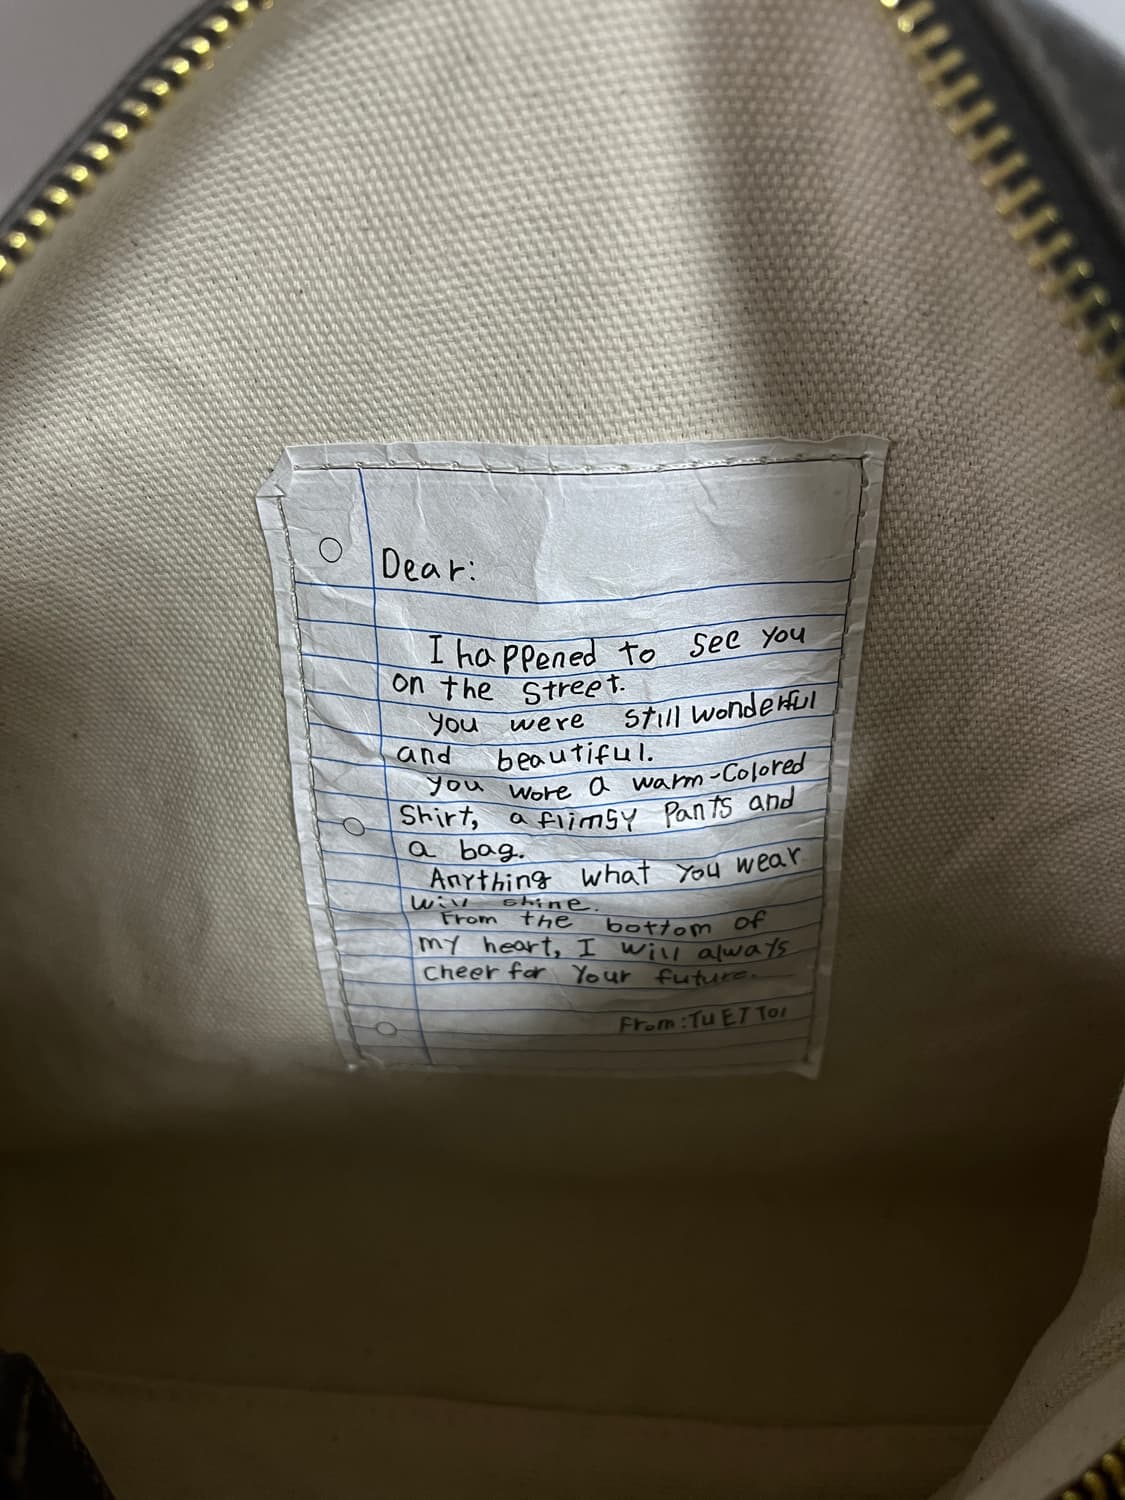 Dear:
I happened to see you
on the street.
you were still wonderful
and beautiful.
you wore a warm-Colored
Shirt, a flimsy Pants and
a bag.
Anything what you wear
will shine.
From the bottom of
my heart, I will always
cheer for your future.
From:TUETTOI